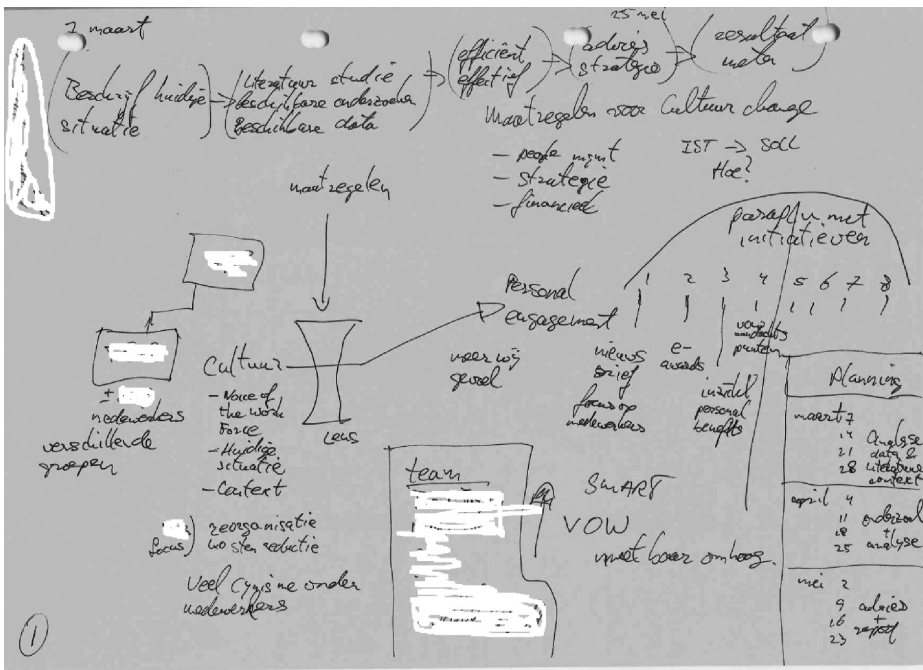 7 maart
25 mei
Beschrijf huidige
situatie
Literatuur studie
Beschikbare onderzoeken
Beschikbare data
efficiënt
effectief
advies
strategie
resultaat
meten
Maatregelen voor Cultuur change
- people mgmt
- strategie
- financieel
IST → SOLL
Hoe?
maatregelen
paraplu met
initiatieven
1 2 3 4 5 6 7 8
Personal
engagement
meer wij
gevoel
nieuws
brief
focus op
medewerkers
e-
awards
personal
benefits
punten
±
medewerkers
verschillende
groepen
Cultuur
- Voice of
the work
Force
- Huidige
situatie
- Context
Lens
focus)
reorganisatie
kosten reductie
Veel cynisme onder
medewerkers
team
SMART
VOW
meetbaar omhoog.
Planning
maart 7
14 analyse
21 data &
28 literatuur
context
april 4
11 onderzoek
18 +
25 analyse
mei 2
9 advies
16 +
23 report
1